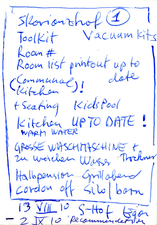 Skorianzhof 1
Toolkit Vacuum kits
Room #
Room list printout up to date
(Communal)
(Kitchen) !
+ Seating Kids Pool
Kitchen UP TO DATE !
WARM WATER
GROSSE WASCHMASCHINE +
zu weichen Wasser Trockner
Halbpension Grillabend
Cordon off Silo / barn
13 VIII 10 S-Hof Eggen
- 2 IX 10